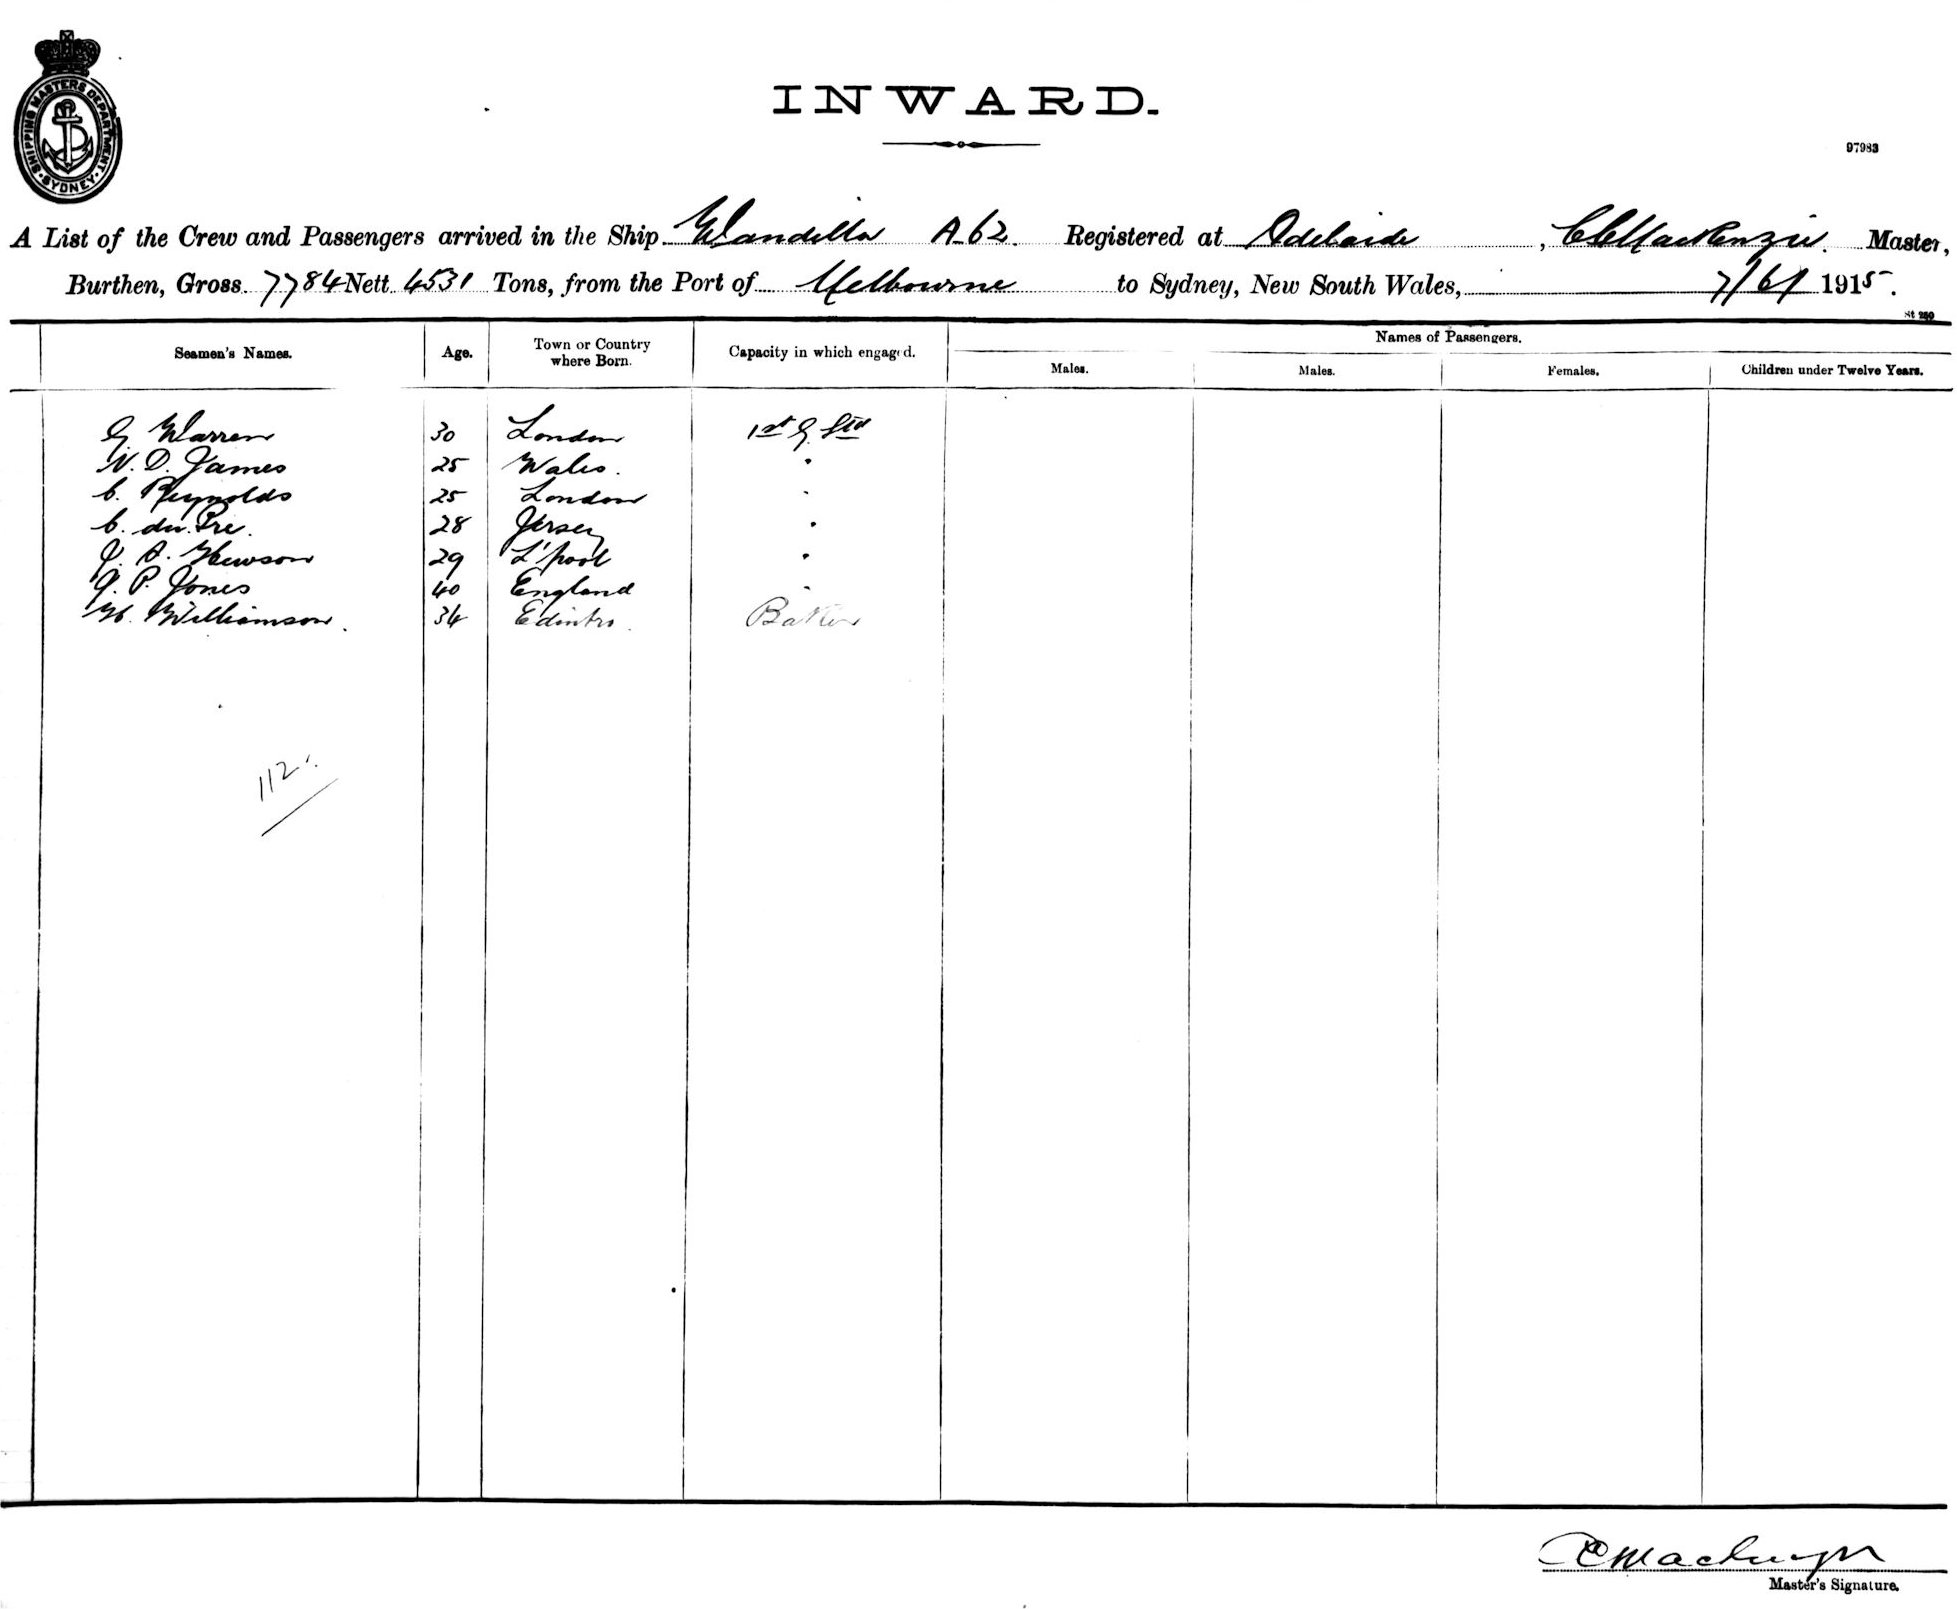 SHIPPING MASTERS DEPARTMENT. SYDNEY.
INWARD.
97983
A List of the Crew and Passengers arrived in the Ship Wandilla A-62. Registered at Adelaide, C C MacKenzie. Master,
Burthen, Gross 7784 Nett 4531 Tons, from the Port of Melbourne to Sydney, New South Wales, 7/6/1915.
St 240
Seamen's Names. Age. Town or Country where Born. Capacity in which engaged. Names of Passengers.
Males. Males. Females. Children under Twelve Years.
G. Warren 30 London 1st G. Std
N. D. James 25 Wales. "
C. Reynolds 25 London "
C. du Pre. 28 Jersey "
J. A. Hewson 29 L'pool "
G. P. Jones 40 England "
H. Williamson. 34 Edinbro. Baker
112
Master's Signature.